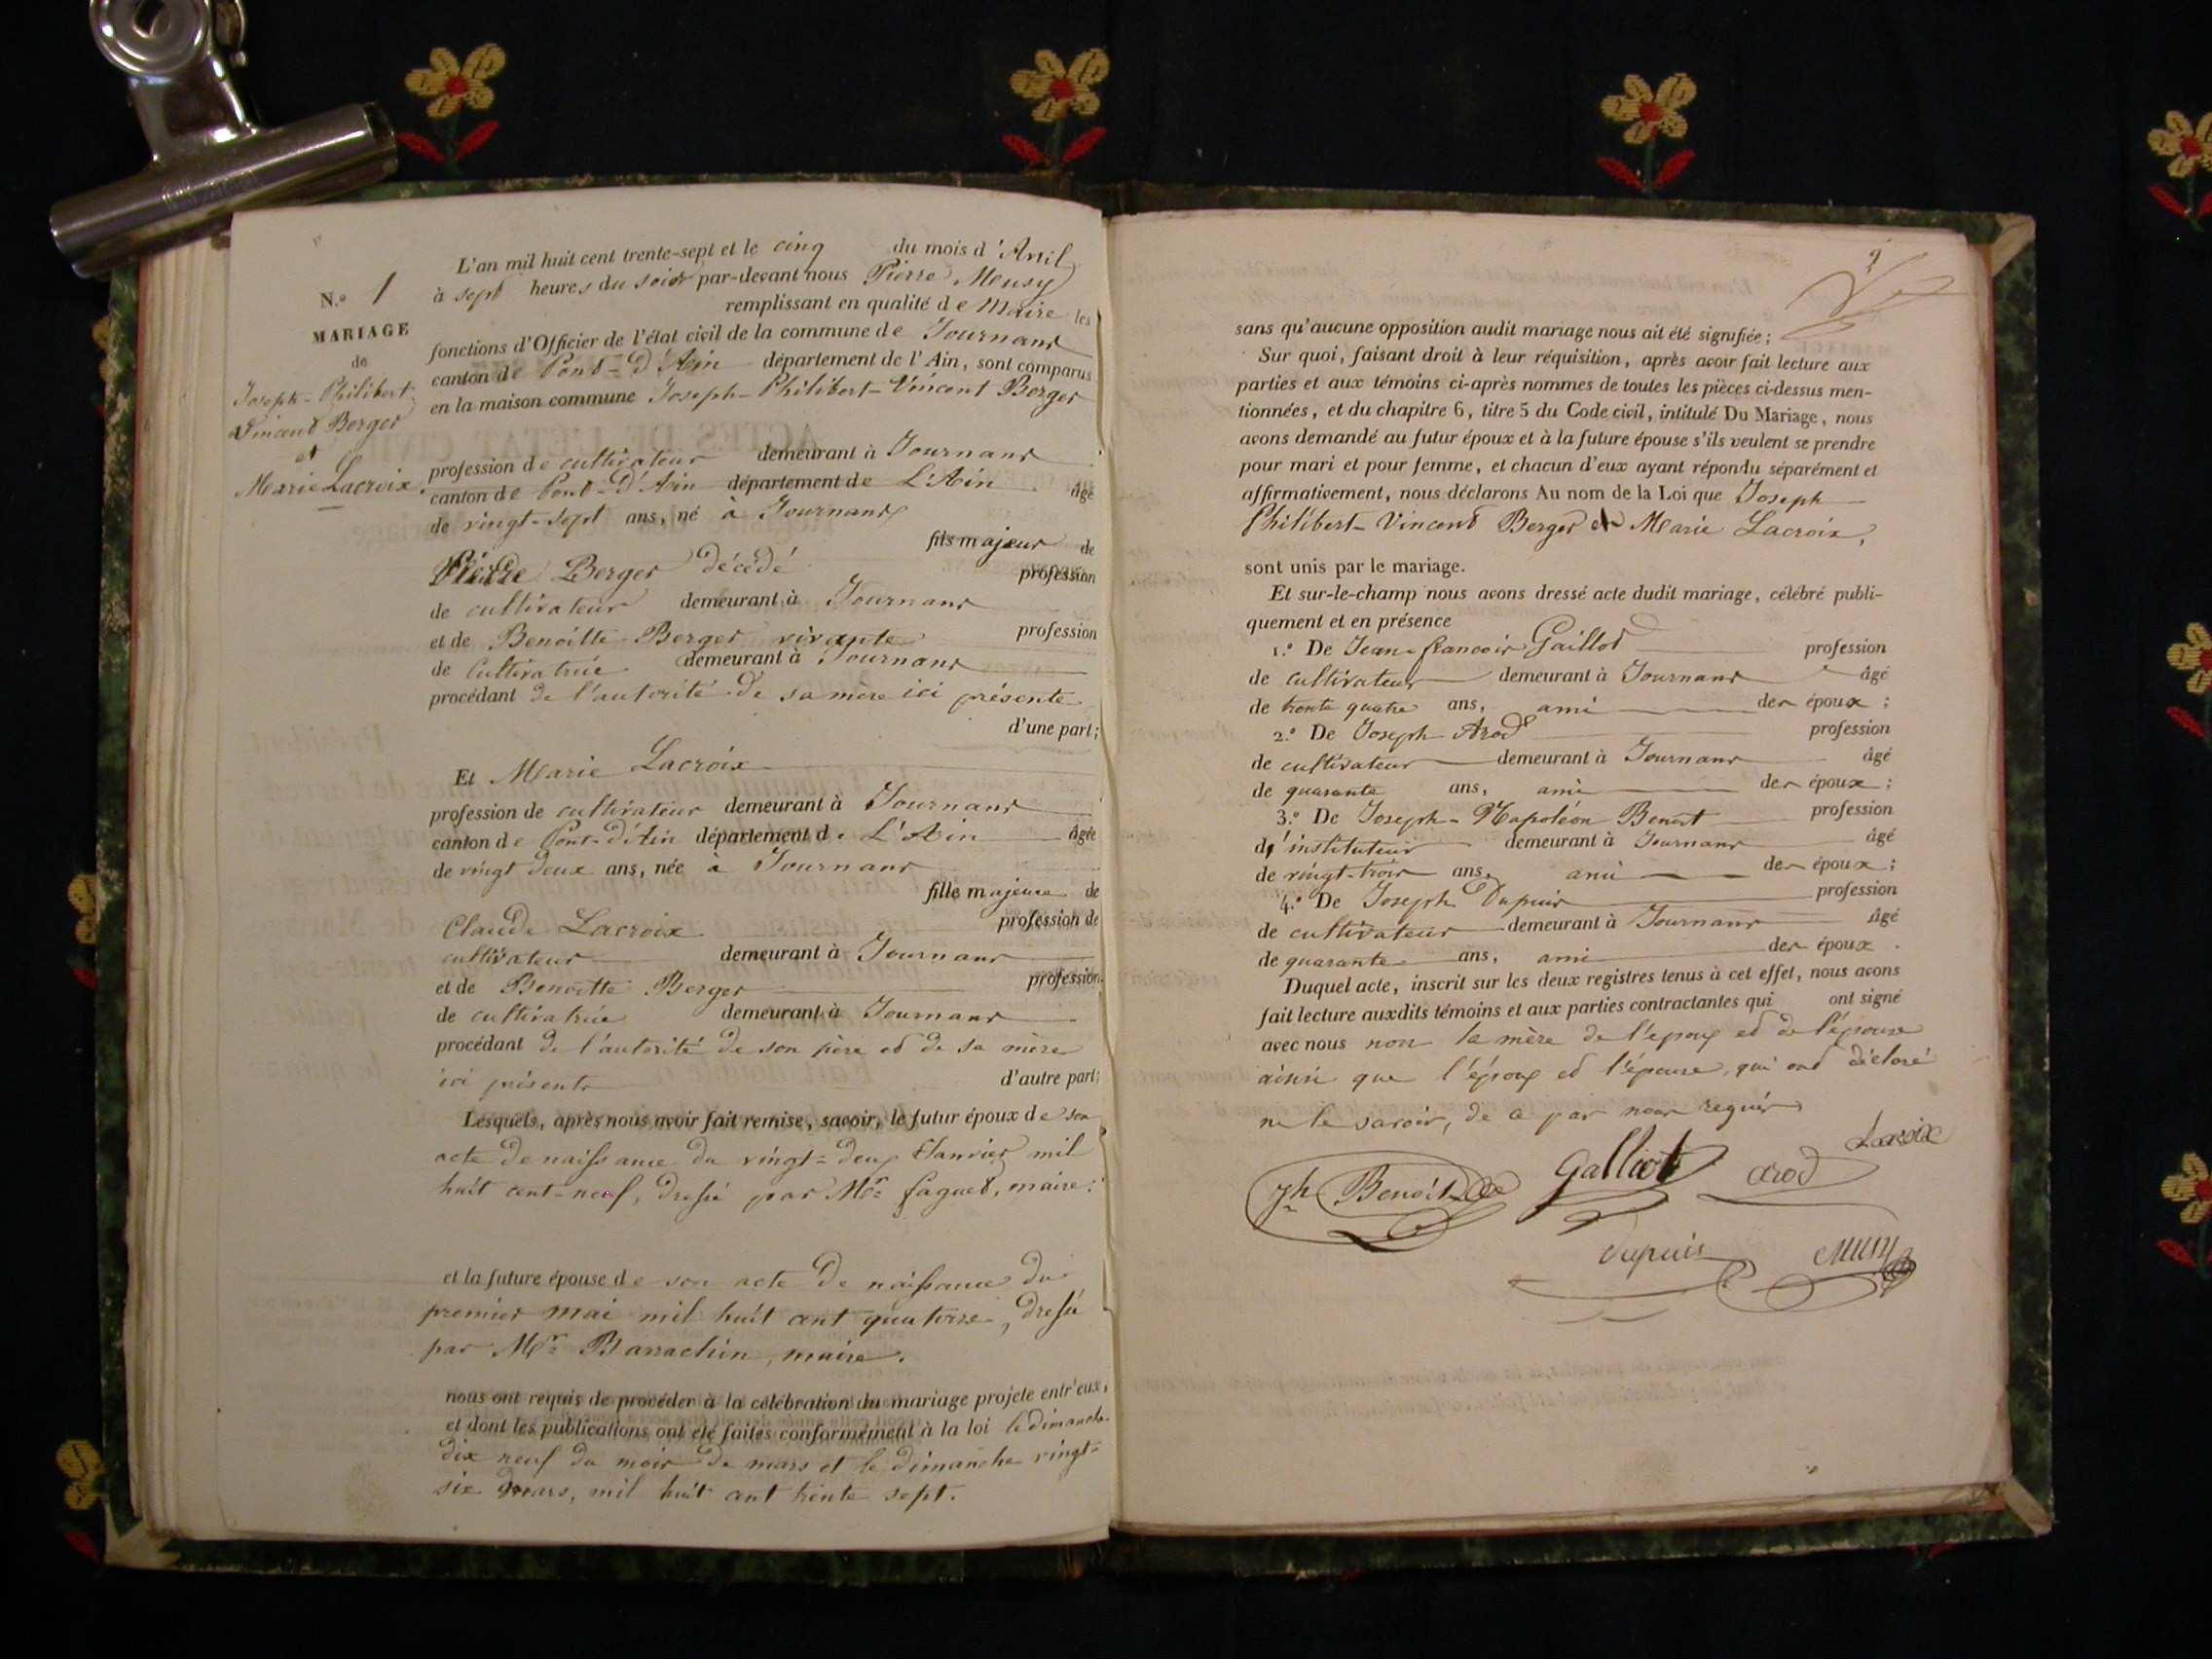 N.º 1
MARIAGE
de
Joseph-Philibert
Vincent Berger
et
Marie Lacroix.
L'an mil huit cent trente-sept et le cinq du mois d'Avril
à sept heures du soir par-devant nous Pierre Meusy
remplissant en qualité de Maire les
fonctions d'Officier de l'état civil de la commune de Journans
canton de Pont-d'Ain département de l'Ain, sont comparus
en la maison commune Joseph-Philibert-Vincent Berger
profession de cultivateur demeurant à Journans
canton de Pont-d'Ain département de L'Ain âgé
de vingt-sept ans, né à Journans
fils majeur de
Pierre Berger décédé profession
de cultivateur demeurant à Journans
et de Benoitte Berger vivante profession
de Cultivatrice demeurant à Journans
procédant de l'autorité de sa mère ici présente
d'une part;
Et Marie Lacroix
profession de cultivateur demeurant à Journans
canton de Pont-d'Ain département de L'Ain âgée
de vingt deux ans, née à Journans
fille majeure de
Claude Lacroix profession de
cultivateur demeurant à Journans
et de Benoitte Berger profession
de cultivatrice demeurant à Journans
procédant de l'autorité de son père et de sa mère
ici présents d'autre part;
Lesquels, après nous avoir fait remise, savoir, le futur époux de son
acte de naissance du vingt-deux Janvier mil
huit cent-neuf, dressé par Mr. faguet, maire:
et la future épouse de son acte de naissance du
premier mai mil huit cent quatorze, dressé
par Mr. Barrachin, maire.
nous ont requis de procéder à la célébration du mariage projeté entr'eux,
et dont les publications ont été faites conformément à la loi le dimanche
dix neuf du mois de mars et le dimanche vingt-
six mars, mil huit cent trente sept.
2
sans qu'aucune opposition audit mariage nous ait été signifiée;
Sur quoi, faisant droit à leur réquisition, après avoir fait lecture aux
parties et aux témoins ci-après nommes de toutes les pièces ci-dessus men-
tionnées, et du chapitre 6, titre 5 du Code civil, intitulé Du Mariage, nous
avons demandé au futur époux et à la future épouse s'ils veulent se prendre
pour mari et pour femme, et chacun d'eux ayant répondu séparément et
affirmativement, nous déclarons Au nom de la Loi que Joseph
Philibert-Vincent Berger et Marie Lacroix,
sont unis par le mariage.
Et sur-le-champ nous avons dressé acte dudit mariage, célébré publi-
quement et en présence
1.º De Jean-françois Gaillot profession
de cultivateur demeurant à Journans âgé
de trente quatre ans, ami des époux;
2.º De Joseph Arod profession
de cultivateur demeurant à Journans âgé
de quarante ans, ami des époux;
3.º De Joseph-Napoléon Benoit profession
d'instituteur demeurant à Journans âgé
de vingt-trois ans, ami des époux;
4.º De Joseph Dupuis profession
de cultivateur demeurant à Journans âgé
de quarante ans, ami des époux.
Duquel acte, inscrit sur les deux registres tenus à cet effet, nous avons
fait lecture auxdits témoins et aux parties contractantes qui ont signé
avec nous non la mère de l'époux et de l'épouse
ainsi que l'époux et l'épouse, qui ont déclaré
ne le savoir, de ce par nous requis
Lacroix
Jh Benoit Galliot arod
dupuis Meusy